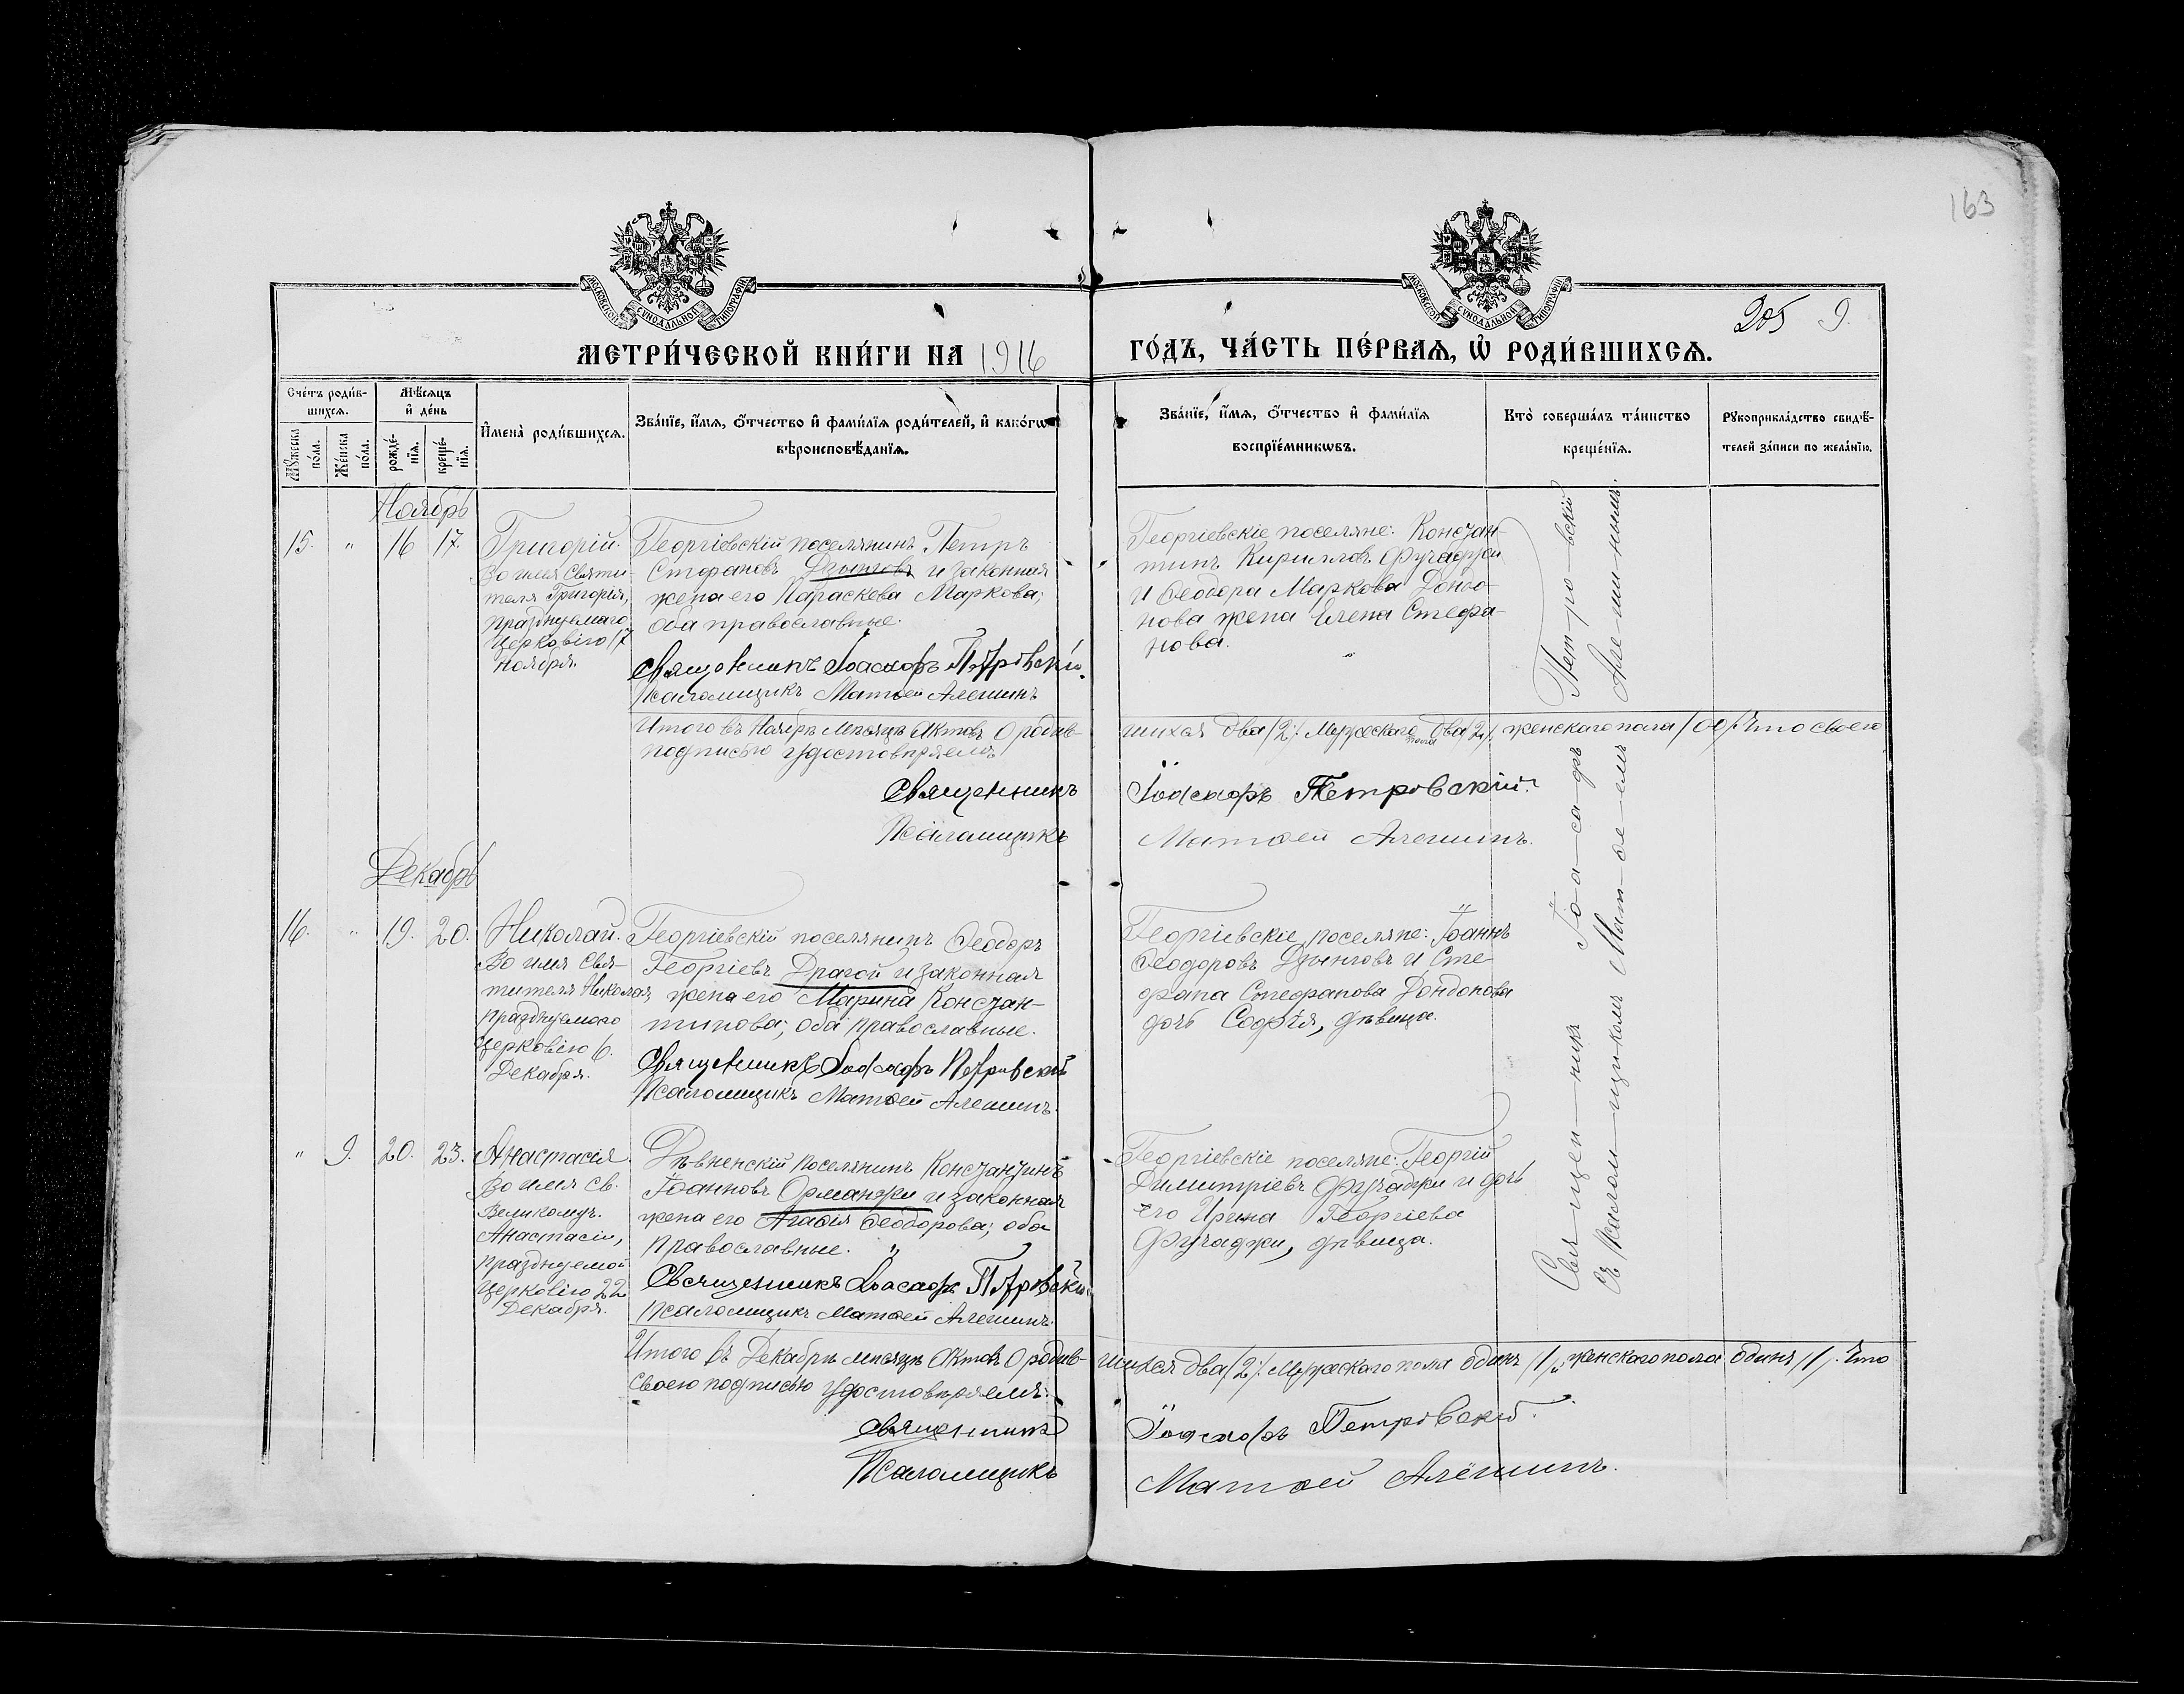 163
МОСКОВСКОЙ СѴНОДАЛЬНОЙ ТИПОГРАФІИ
МОСКОВСКОЙ СѴНОДАЛЬНОЙ ТИПОГРАФІИ
205 9.
МЕТРИ́ЧЕСКОЙ КНИ́ГИ НА 1916
ГО́ДЪ, ЧА́СТЬ ПЕ́РВАЯ, Ѡ҆ РОДИ́ВШИХСЯ.
Сче́тъ роди́в-
шихся.
Мѣ́сяцъ
и҆ де́нь
Мꙋ́жеска
по́ла.
Же́нска
по́ла.
рожде́-
нїя.
креще́-
нїя.
И҆мена̀ роди́вшихся.
Зва́нїе, и҆́мя, ѻ҆́тчество и҆ фами́лїя роди́телей, и҆ како́гѡ
вѣроисповѣ́данїя.
Зва́нїе, и҆́мя, ѻ҆́тчество и҆ фами́лїя
воспрїе́мникѡвъ.
Кто̀ соверша́лъ та́инство
креще́нїя.
Рꙋкоприкла́дство свидѣ́-
телей за́писи по жела́нїю.
Ноябрь
15. " 16 17.
Григорій.
Во имя Святи-
теля Григорія,
празднуемаго
Церковію 17
ноября.
Георгіевскій поселянинъ Петръ
Стефановъ Дзынговъ и законная
жена его Параскева Маркова;
оба православные.
Священникъ Іоасафъ Петровскій.
Псаломщикъ Матѳей Алешинъ
Георгіевскіе поселяне: Констан-
тинъ Кирилловъ Фучаджи
и Ѳеодора Маркова Дондо-
нова жена Елена Стефа-
нова.
Итого въ Ноябрѣ мѣсяцѣ Актовъ О родив-
шихся два /2/. Мужескаго пола два /2/, женскаго пола /00/. Что своею
подписью удостовѣряемъ
Священникъ Іоасафъ Петровскій.
Псаломщикъ Матѳей Алешинъ.
Декабрь
16. " 19. 20.
Николай.
Во имя Свя-
тителя Николая,
празднуемаго
Церковію 6.
Декабря.
Георгіевскій поселянинъ Ѳеодоръ
Георгіевъ Драгой и законная
жена его Марина Констан-
тинова; оба православные.
Священникъ Іоасафъ Петровскій
Псаломщикъ Матѳей Алешинъ.
Георгіевскіе поселяне: Іоаннъ
Ѳеодоровъ Дзынговъ и Сте-
фана Стефанова Дондонова
дочь Софія, дѣвица.
" 9. 20. 23.
Анастасія
Во имя Св.
Великомуч.
Анастасіи,
празднуемой
Церковію 22
Декабря.
Дѣвненскій поселянинъ Константинъ
Іоанновъ Орманжи и законная
жена его Агаѳія Ѳеодорова; оба
православные.
Священникъ Іоасафъ Петровскій
Псаломщикъ Матѳей Алешинъ.
Георгіевскіе поселяне: Георгій
Димитріевъ Фучаджи и дочь
его Ирина Георгіева
Фучаджи, дѣвица.
Свя-щен-никъ Іо-а-са-фъ Пет-ро-вскій
съ Псалом-щикомъ Мат-ѳе-емъ Але-ши-нымъ.
Итого въ Декабрѣ мѣсяцѣ Актовъ О родив-
шихся два /2/. Мужескаго пола одинъ /1/, женскаго пола одинъ /1/. Что
своею подписью удостовѣряемъ:
Священникъ Іоасафъ Петровскій.
Псаломщикъ Матѳей Алёшинъ.